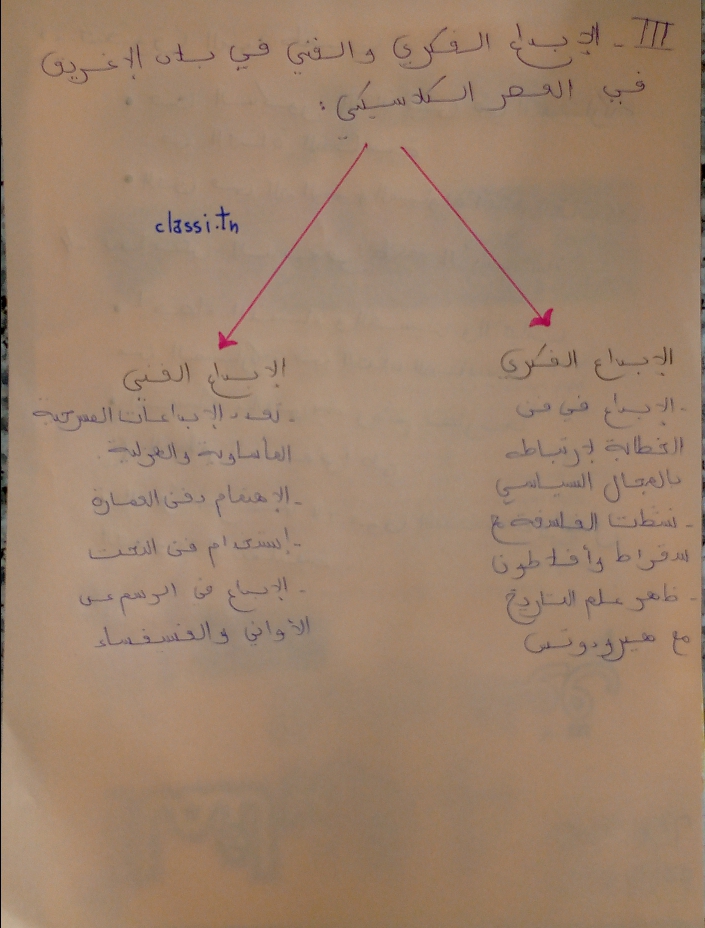 III - الإبداع الفكري والفني في بلاد الإغريق
في العصر الكلاسيكي :
classi.tn
الإبداع الفكري
- الإبداع في فن
الخطابة لإرتباطه
بالمجال السياسي
- نشطت الفلسفة مع
سقراط وأفلاطون
- ظاهر علم التاريخ
مع هيرودوتس
الإبداع الفني
- تعدد الإبداعات المسرحية
المأساوية والهزلية
- الإهتمام بفن العمارة
- إستخدام فن النحت
- الإبداع في الرسم على
الأواني والفسيفساء